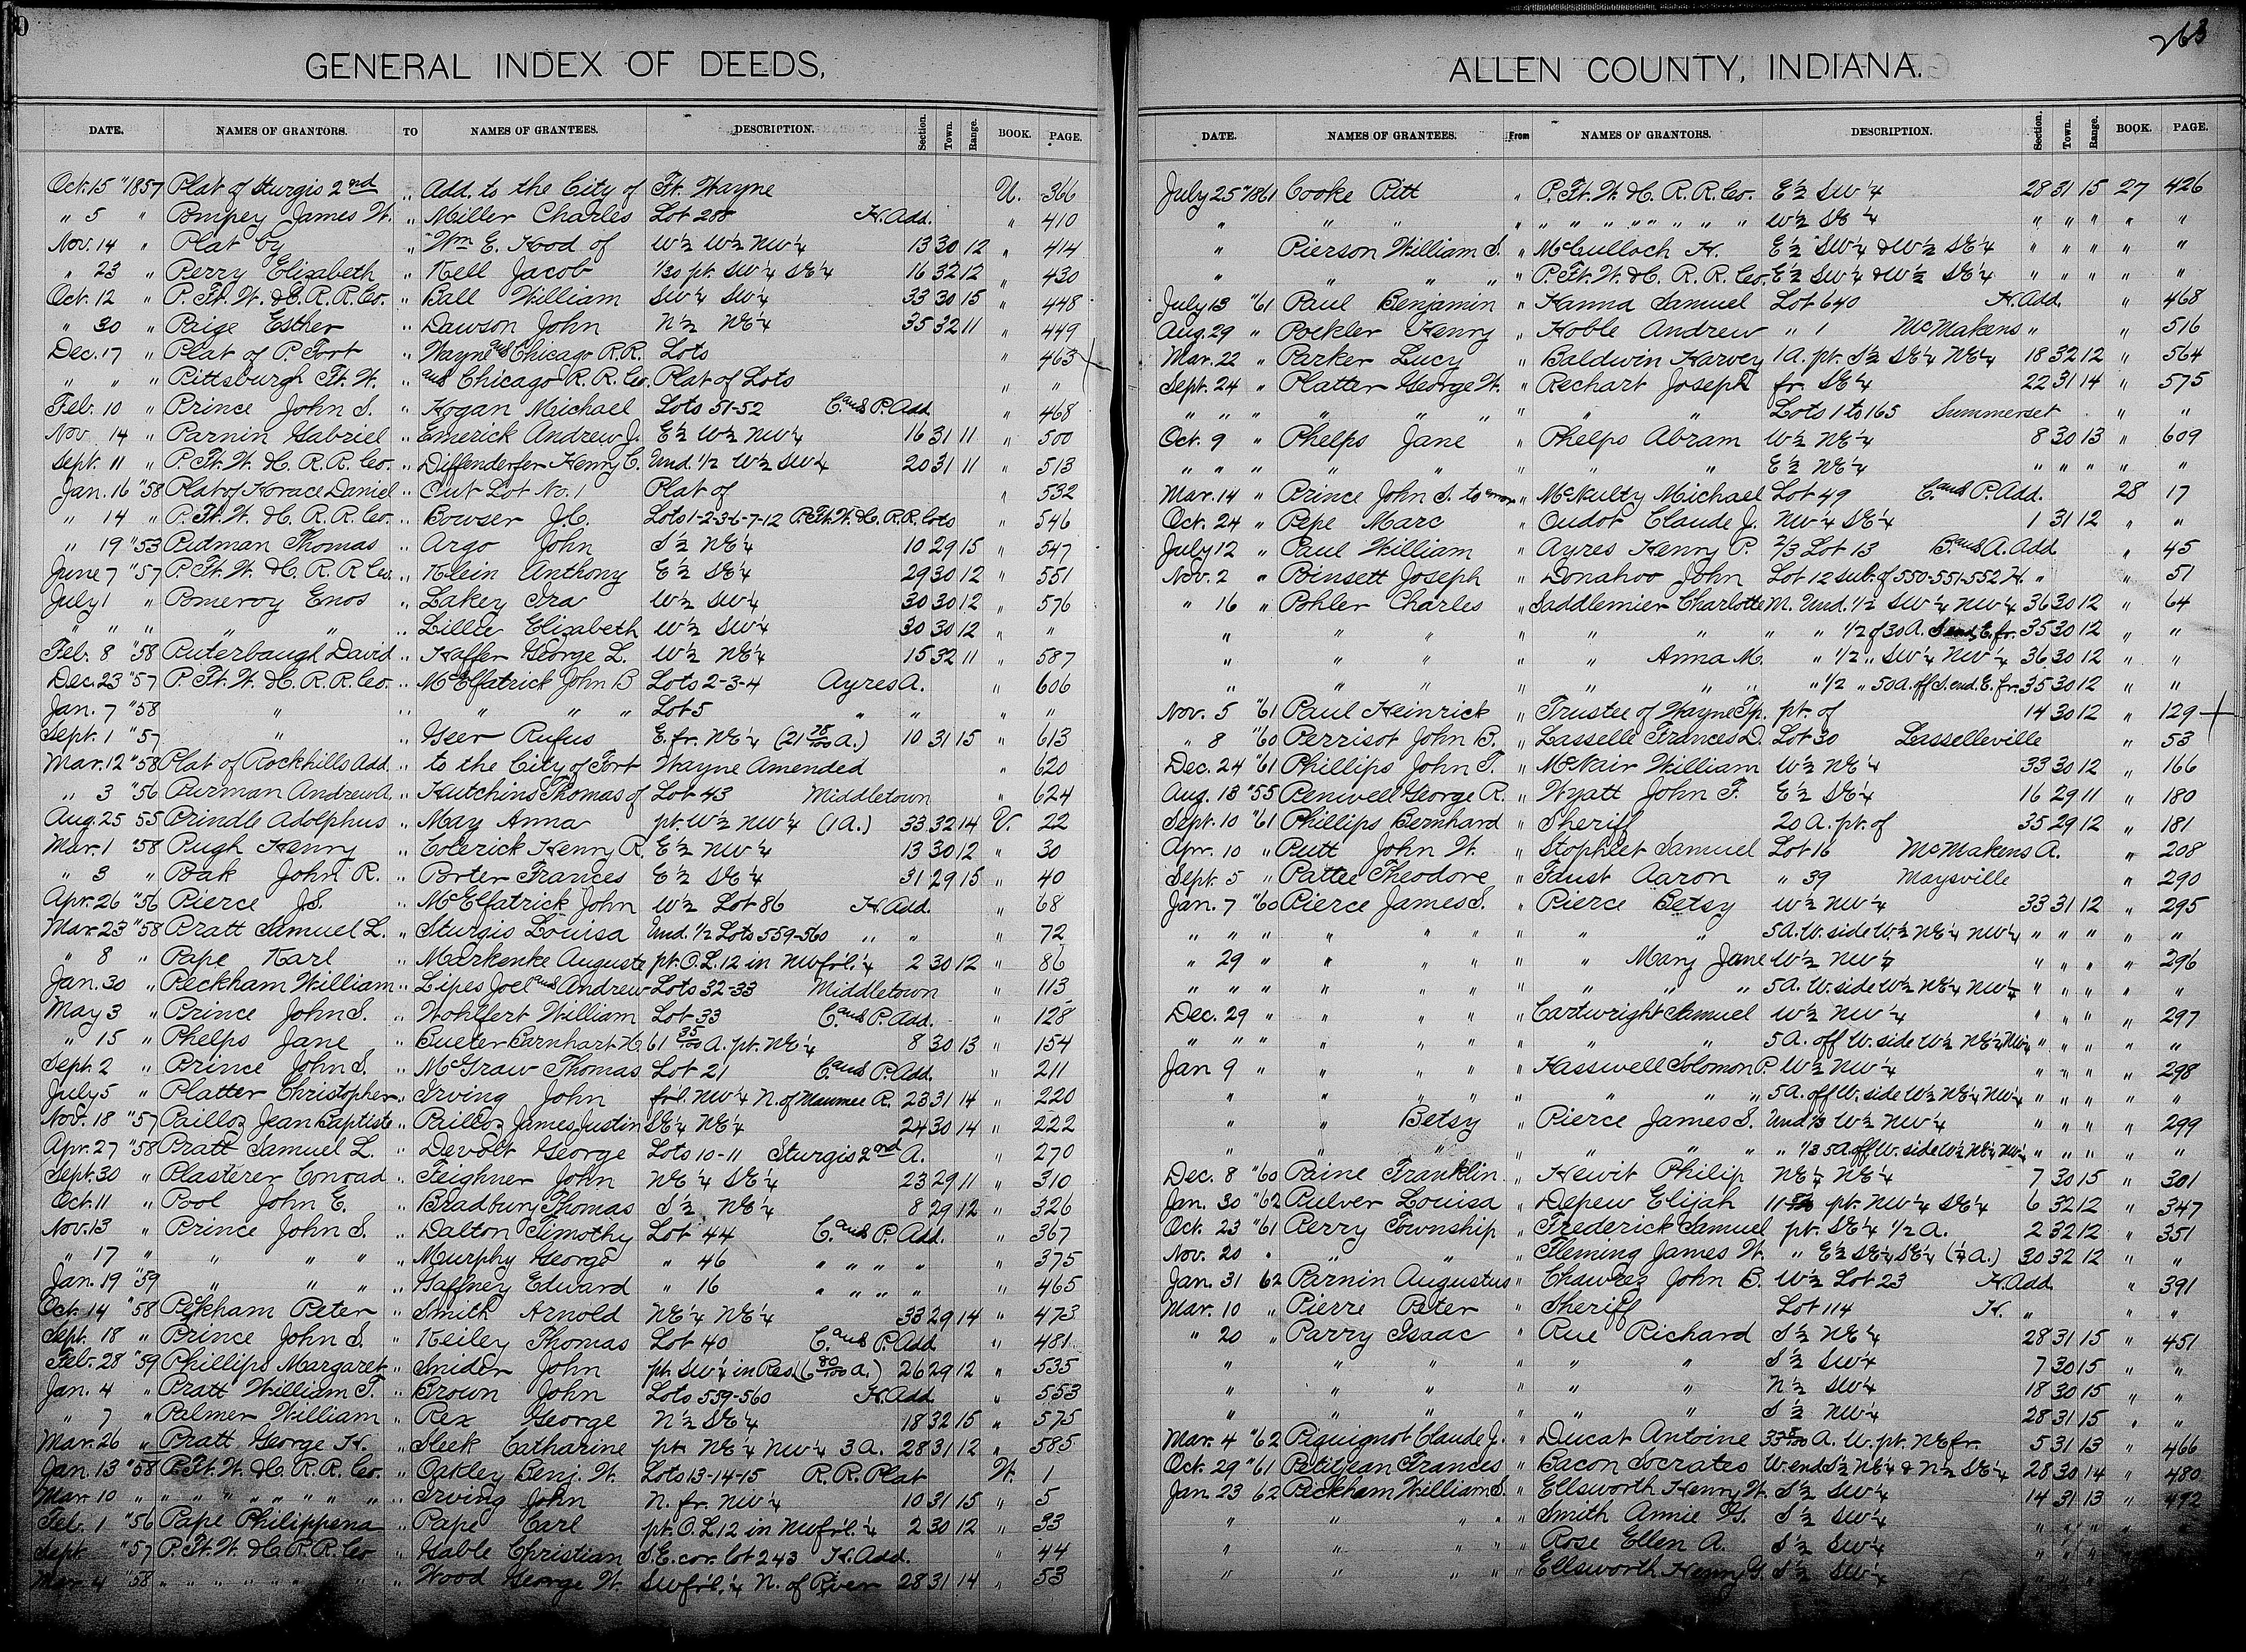 263
GENERAL INDEX OF DEEDS,
DATE. NAMES OF GRANTORS. TO NAMES OF GRANTEES. DESCRIPTION. Section. Town. Range. BOOK. PAGE.
Oct. 15 "1857 Plat of Sturgis 2nd " Add. to the City of Ft. Wayne U. 366
" 5 " Pompey James W. " Miller Charles Lot 208 H. Add. " 410
Nov. 14 " Plat by " Wm E. Hood of W½ W½ NW¼ 13 30 12 " 414
" 23 " Perry Elizabeth " Kell Jacob 1/30 pt. SW¼ SE¼ 16 32 12 " 430
Oct. 12 " P. Ft. W. & C. R. R. Co. " Ball William SW¼ SW¼ 33 30 15 " 448
" 30 " Paige Esther " Dawson John N½ NE¼ 35 32 11 " 449
Dec. 17 " Plat of P. Fort " Wayne and Chicago R.R. Lots " 463
" " " Pittsburgh Ft. W. " and Chicago R. R. Co. Plat of Lots " "
Feb. 10 " Prince John S. " Hogan Michael Lots 51-52 C. and P. Add. " 468
Nov 14 " Parnin Gabriel " Emerick Andrew J. E½ W½ NW¼ 16 31 11 " 500
Sept. 11 " P. Ft. W. & C. R. R. Co. " Diffenderfer Henry C. Und. 1/2 W½ SW¼ 20 31 11 " 513
Jan. 16 "58 Plat of Horace Daniel " Out Lot No. 1 Plat of " 532
" 14 " P. Ft. W. & C. R. R. Co. " Bowser J.C. Lots 1-2-3-6-7-12 P. Ft. W. & C. R.R. Lots " 546
" 19 "53 Pidman Thomas " Argo John S½ NE¼ 10 29 15 " 547
June 7 "57 P. Ft. W. & C. R. R Co. " Klein Anthony E½ SE¼ 29 30 12 " 551
July 1 " Pomeroy Enos " Lakey Ira W½ SW¼ 30 30 12 " 576
" " " " " " Lillie Elizabeth W½ SW¼ 30 30 12 " "
Feb. 8 "58 Puterbaugh David " Haffer George L. W½ NE¼ 15 32 11 " 587
Dec. 23 "57 P. Ft. W. & C. R. R. Co. " McElfatrick John B Lots 2-3-4 Ayres A. " 606
Jan. 7 "58 " " " " " Lot 5 " " " "
Sept. 1 "57 " " Geer Rufus E. fr. NE¼ (21 75/100 A.) 10 31 15 " 613
Mar. 12 "58 Plat of Rockhills Add. " to the City of Fort Wayne Amended " 620
" 3 "56 Purman Andrew A. " Hutchins Thomas of Lot 43 Middletown " 624
Aug. 25 55 Prindle Adolphus " May Anna pt. W½ NW¼ (1 A.) 33 32 14 V. 22
Mar. 1 "58 Pugh Henry " Colerick Henry R. E½ NW¼ 13 30 12 " 30
" 3 " Pbak John R. " Porter Frances E½ SE¼ 31 29 15 " 40
Apr. 26 "56 Pierce J.S. " McElfatrick John W½ Lot 86 H. Add. " 68
Mar. 23 "58 Pratt Samuel L. " Sturgis Louisa Und. 1/2 Lots 559-560 " " " 72
" 8 " Pape Karl " Markenke Auguste pt. O.L. 12 in NW fr'l. ¼ 2 30 12 " 86
Jan. 30 " Peckham William " Lipes Joel and Andrew Lots 32-33 Middletown " 113
May 3 " Prince John S. " Wohlfert William Lot 33 C. and P. Add. " 128
" 15 " Phelps Jane " Bueter Barnhart H. 61 35/100 A. pt. NE¼ 8 30 13 " 154
Sept. 2 " Prince John S. " McGraw Thomas Lot 21 C. and P. Add. " 211
July 5 " Platter Christopher " Irving John fr'l. NW¼ N. of Maumee R. 23 31 14 " 220
Nov. 18 "57 Pailloz Jean Baptiste " Pailloz James Justin SE¼ NE¼ 24 30 14 " 222
Apr. 27 "58 Pratt Samuel L. " Devolt George Lots 10-11 Sturgis 2nd A. " 270
Sept. 30 " Plasterer Conrad " Feighner John NE¼ SE¼ 23 29 11 " 310
Oct. 11 " Pool John E. " Bradbury Thomas S½ NE¼ 8 29 12 " 326
Nov. 13 " Prince John S. " Dalton Timothy Lot 44 C. and P. Add. " 367
" 17 " " " " " Murphy George " 46 " " " " " 375
Jan. 19 "59 " " " " Gaffney Edward " 16 " " " " " 465
Oct. 14 "58 Peckham Peter " Smith Arnold NE¼ NE¼ 33 29 14 " 473
Sept. 18 " Prince John S. " Keiley Thomas Lot 40 C. and P. Add " 481
Feb. 28 "59 Phillips Margaret " Snider John pt. SW¼ in Res. (6 80/100 A.) 26 29 12 " 535
Jan. 4 " Pratt William T. " Brown John Lots 559-560 H. Add " 553
" 7 " Palmer William " Rex George N½ SE¼ 18 32 15 " 575
Mar. 26 " Pratt George H. " Sleek Catharine pt. NE¼ NW¼ 3 A. 28 31 12 " 585
Jan. 13 "58 P. Ft. W. & C. R. R. Co. " Oakley Benj. W. Lots 13-14-15 R. R. Plat W. 1
Mar. 10 " " " " " " " " " " Irving John N. fr. NW¼ 10 31 15 " 5
Feb. 1 "56 Pape Philippena " Pape Carl pt. O.L 12 in NW fr'l. ¼ 2 30 12 " 33
Sept "57 P. Ft. W. & C. R. R. Co " Gable Christian S.E. cor. lot 243 H. Add. " 44
Mar. 4 "58 " " " " " " " " " Wood George W. SW fr'l. ¼ N. of River 28 31 14 " 53
ALLEN COUNTY, INDIANA.
DATE. NAMES OF GRANTEES. From NAMES OF GRANTORS. DESCRIPTION. Section. Town. Range. BOOK. PAGE.
July 25 "1861 Cooke Pitt " P. Ft. W. & C. R. R. Co. E½ SW¼ 28 31 15 27 426
" " " " " " " " " " W½ SE¼ " " " " "
" Pierson William S. " McCulloch H. E½ SW¼ & W½ SE¼ " " " " "
" " " " " P. Ft. W. & C. R. R. Co. E½ SW¼ & W½ SE¼ " " " " "
July 13 "61 Paul Benjamin " Hanna Samuel Lot 640 H. Add. " 468
Aug. 29 " Poekler Henry " Hoble Andrew " 1 McMakens " " 516
Mar. 22 " Parker Lucy " Baldwin Harvey 1 A. pt. S½ SE¼ NE¼ 18 32 12 " 564
Sept. 24 " Platter George W. " Rechart Joseph fr. SE¼ 22 31 14 " 575
" " " " " " " " " Lots 1 to 165 Summerset " "
Oct. 9 " Phelps Jane " Phelps Abram W½ NE¼ 8 30 13 " 609
" " " " " " " " E½ NE¼ " " " " "
Mar. 14 " Prince John S. to error " McNulty Michael Lot 49 C. and P. Add. 28 17
Oct. 24 " Pepe Marc " Oudot Claude J. NW¼ SE¼ 1 31 12 " "
July 12 " Paul William " Ayres Henry P. 2/3 Lot 13 B. and A. Add " 45
Nov. 2 " Pinsett Joseph " Donahoo John Lot 12 sub. of 550-551-552 H. " " 51
" 16 " Pohler Charles " Saddlemier Charlotte M. Und. 1/2 SW¼ NW¼ 36 30 12 " 64
" " " " " " " " 1/2 of 30 A. S end, E. fr. 35 30 12 " "
" " " " " Anna M. " 1/2 " SW¼ NW¼ 36 30 12 " "
" " " " " " " " 1/2 " 50 A. off S. end. E. fr. 35 30 12 " "
Nov. 5 "61 Paul Heinrick " Trustee of Wayne Tp. pt. of 14 30 12 " 129
" 8 "60 Perrisot John B. " Lasselle Frances D. Lot 30 Lasselleville " 53
Dec. 24 "61 Phillips John T. " McNair William W½ NE¼ 33 30 12 " 166
Aug. 18 "55 Peniwell George R. " Wyatt John F. E½ SE¼ 16 29 11 " 180
Sept. 10 "61 Phillips Bernhard " Sheriff 20 A. pt. of 35 29 12 " 181
Apr. 10 " Putt John W. " Stophlet Samuel Lot 16 McMakens A. " 208
Sept. 5 " Pattee Theodore " Faust Aaron " 39 Maysville " 290
Jan. 7 "60 Pierce James S. " Pierce Betsy W½ NW¼ 33 31 12 " 295
" " " " " " " " " 5 A. W. side W½ NE¼ NW¼ " " " " "
" 29 " " " " " " Mary Jane W½ NW¼ " " " " 296
" " " " " " " " " " 5 A. W. side W½ NE¼ NW¼ " " " " "
Dec. 29 " " " " " Cartwright Samuel W½ NW¼ " " " " 297
" " " " " " " " " 5 A. off W. side W½ NE¼ NW¼ " " " " "
Jan 9 " " " " " Hasswell Solomon P. W½ NW¼ " " " " 298
" " " " " " " " 5 A. off W. side W½ NE¼ NW¼ " " " " "
" " Betsy " Pierce James S. Und 1/3 W½ NW¼ " " " " 299
" " " " " " " " 1/3 5 A off W. side W½ NE¼ NW¼ " " " " "
Dec. 8 "60 Paine Franklin " Hewit Philip NE¼ NE¼ 7 30 15 " 301
Jan. 30 "62 Pulver Louisa " Depew Elijah pt. NW¼ SE¼ 6 32 12 " 347
Oct. 23 "61 Perry Township " Frederick Samuel pt. SE¼ 1/2 A. 2 32 12 " 351
Nov. 20 " " " " Fleming James W. " E½ SE¼ SE¼ (¼ A.) 30 32 12 " "
Jan. 31 62 Parnin Augustus " Chawrez John B. W½ Lot 23 H. Add " 391
Mar. 10 " Pierre Peter " Sheriff Lot 114 H. " " "
" 20 " Parry Isaac " Rue Richard S½ NE¼ 28 31 15 " 451
" " " " " " S½ SW¼ 7 30 15 " "
" " " " " " N½ SW¼ 18 30 15 " "
" " " " " " S½ NW¼ 28 31 15 " "
Mar. 4 "62 Piquignot Claude J. " Ducat Antoine A. W. pt. NE fr. 5 31 13 " 466
Oct. 29 "61 Petitjean Frances " Bacon Socrates W. end S½ NE¼ & N½ SE¼ 28 30 14 " 480
Jan 23 62 Peckham William S. " Ellsworth Henry W. S½ SW¼ 14 31 13 " 492
" " " " " Smith Annie G. S½ SW¼ " " " " "
" " " " " Rose Ellen A. S½ SW¼ " " "
" " " " " Ellsworth Henry G. S½ SW¼ " " "